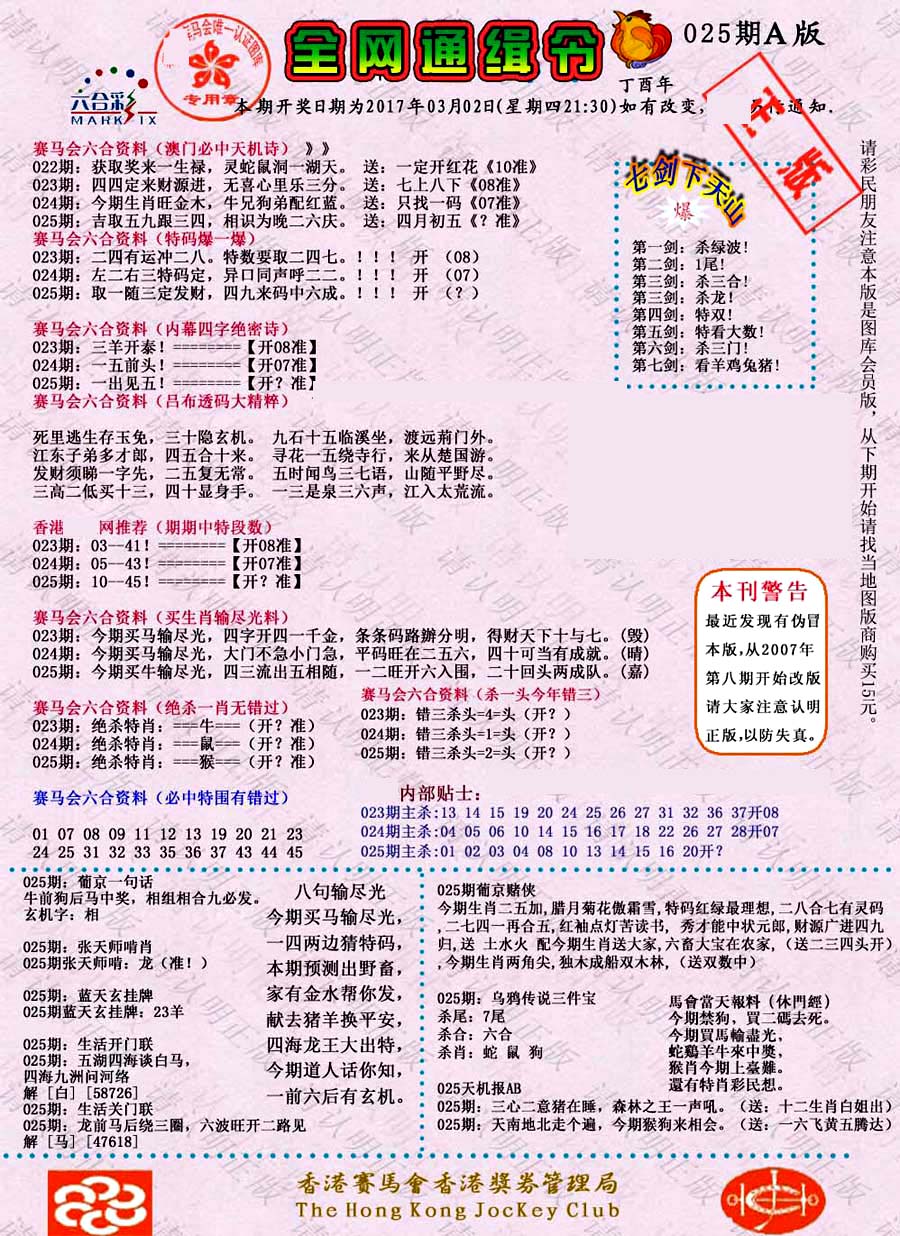 全网通缉令
025期A版
丁酉年
专用章
六合彩
MARK SIX
本期开奖日期为2017年03月02日(星期四21:30)如有改变,
通知.
正版
赛马会六合资料（澳门必中天机诗）》》
022期：获取奖来一生禄，灵蛇鼠洞一湖天。 送：一定开红花《10准》
023期：四四定来财源进，无喜心里乐三分。 送：七上八下《08准》
024期：今期生肖旺金木，牛兄狗弟配红蓝。 送：只找一码《07准》
025期：吉取五九跟三四，相识为晚二六庆。 送：四月初五《？准》
赛马会六合资料（特码爆一爆）
023期：二四有运冲二八。特数要取二四七。！！！ 开 （08）
024期：左二右三特码定，异口同声呼二二。！！！ 开 （07）
025期：取一随三定发财，四九来码中六成。！！！ 开 （？）
七剑下天山
爆
第一剑：杀绿波！
第二剑：1尾！
第三剑：杀三合！
第三剑：杀龙！
第四剑：特双！
第五剑：特看大数！
第六剑：杀三门！
第七剑：看羊鸡兔猪！
请彩民朋友注意本版是图库会员版，从下期开始请找当地图版商购买15元。
赛马会六合资料（内幕四字绝密诗）
023期：三羊开泰！========【开08准】
024期：一五前头！========【开07准】
025期：一出见五！========【开？准】
赛马会六合资料（吕布透码大精粹）
死里逃生存玉免，三十隐玄机。 九石十五临溪坐，渡远荊门外。
江东子弟多才郎，四五合十来。 寻花一五绕寺行，来从楚国游。
发财须睇一字先，二五复无常。 五时闻鸟三七语，山随平野尽。
三高二低买十三，四十显身手。 一三是泉三六声，江入太荒流。
香港 网推荐（期期中特段数）
023期：03--41！========【开08准】
024期：05--43！========【开07准】
025期：10--45！========【开？准】
本刊警告
最近发现有伪冒
本版,从2007年
第八期开始改版
请大家注意认明
正版,以防失真。
赛马会六合资料（买生肖输尽光料）
023期：今期买马输尽光，四字开四一千金，条条码路辦分明，得财天下十与七。(毁)
024期：今期买马输尽光，大门不急小门急，平码旺在二五六，四十可当有成就。(晴)
025期：今期买牛输尽光，四三流出五相随，一二旺开六入围，二十回头两成队。(嘉)
赛马会六合资料（绝杀一肖无错过）
023期：绝杀特肖：===牛===（开？准）
024期：绝杀特肖：===鼠===（开？准）
025期：绝杀特肖：===猴===（开？准）
赛马会六合资料（杀一头今年错三）
023期：错三杀头=4=头（开？）
024期：错三杀头=1=头（开？）
025期：错三杀头=2=头（开？）
赛马会六合资料（必中特围有错过）
01 07 08 09 11 12 13 19 20 21 23
24 25 31 32 33 35 36 37 43 44 45
内部贴士：
023期主杀:13 14 15 19 20 24 25 26 27 31 32 36 37开08
024期主杀:04 05 06 10 14 15 16 17 18 22 26 27 28开07
025期主杀:01 02 03 04 08 10 13 14 15 16 20开？
025期：葡京一句话
牛前狗后马中奖，相组相合九必发。
玄机字：相
025期：张天师啃肖
025期张天师啃：龙（准！）
025期：蓝天玄挂牌
025期蓝天玄挂牌：23羊
025期：生活开门联
025期：五湖四海谈白马，
四海九洲问河络
解［白］[58726]
025期：生活关门联
025期：龙前马后绕三圈，六波旺开二路见
解［马］[47618]
八句输尽光
今期买马输尽光，
一四两边猜特码，
本期预测出野畜，
家有金水帮你发，
献去猪羊换平安，
四海龙王大出特，
今期道人话你知，
一前六后有玄机。
025期葡京赌侠
今期生肖二五加,腊月菊花傲霜雪,特码红绿最理想,二八合七有灵码
,二七四一再合五,红袖点灯苦读书, 秀才能中状元郎,财源广进四九
归,送 土水火 配今期生肖送大家,六畜大宝在农家,（送二三四头开）
,今期生肖两角尖,独木成船双木林,（送双数中）
025期：乌鸦传说三件宝
杀尾：7尾
杀合：六合
杀肖：蛇 鼠 狗
馬會當天報料（休門經）
今期禁狗、買二碼去死。
今期買馬輸盡光，
蛇鷄羊牛來中獎，
猴肖今期上臺難。
還有特肖彩民想。
025天机报AB
025期：三心二意猪在睡，森林之王一声吼。（送：十二生肖白姐出）
025期：天南地北走个遍，今期猴狗来相会。（送：一六飞黄五腾达）
香港賽馬會香港獎券管理局
The Hong Kong JocKey Club